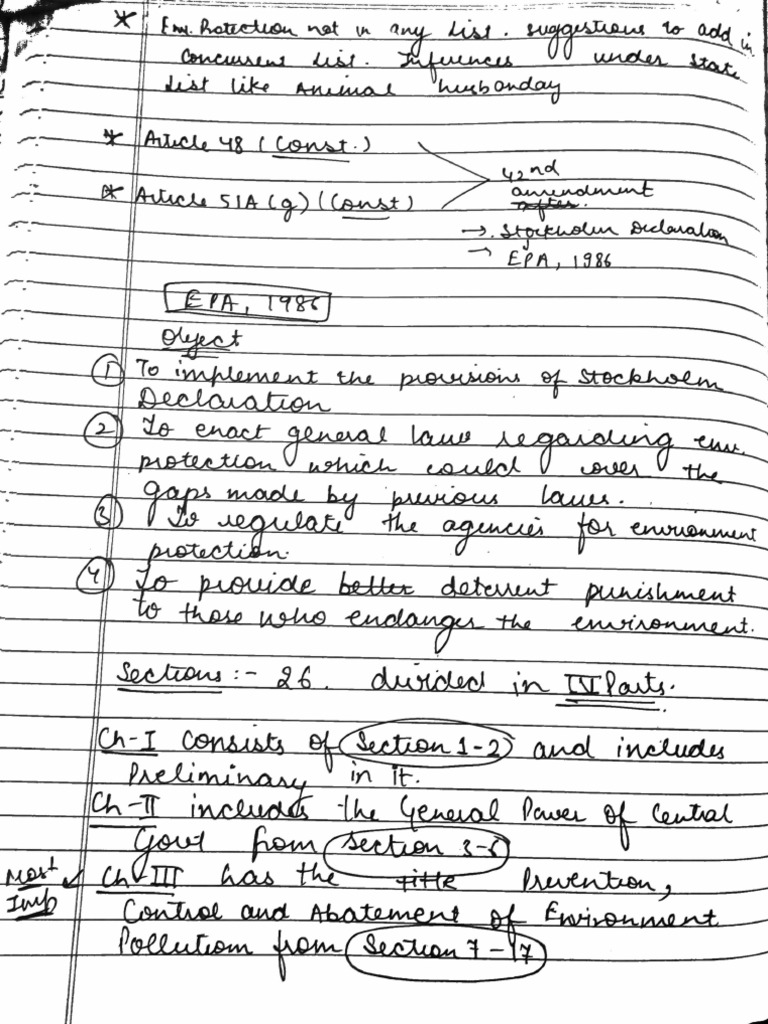 * Env. Protection not in any List. suggestions to add in
concurrent List. Inferences under State
List like Animal husbanday
* Article 48 (Const.)
* Article 51A (g) (Const)
42nd
amendment
after.
→ Stockholm Declaration
→ EPA, 1986
EPA, 1986
Object
① To implement the provisions of Stockholm
Declaration
② To enact general laws regarding env.
protection which could cover the
gaps made by previous laws.
③ To regulate the agencies for environment
protection.
④ To provide better deterrent punishment
to those who endanger the environment.
Sections :- 26. divided in IV Parts.
Ch-I consists of Section 1-2 and includes
Preliminary in it.
Ch-II includes the General Power of Central
Govt from Section 3-6
Most Imp ✓ Ch-III has the title Prevention,
Control and Abatement of Environment
Pollution from Section 7-17